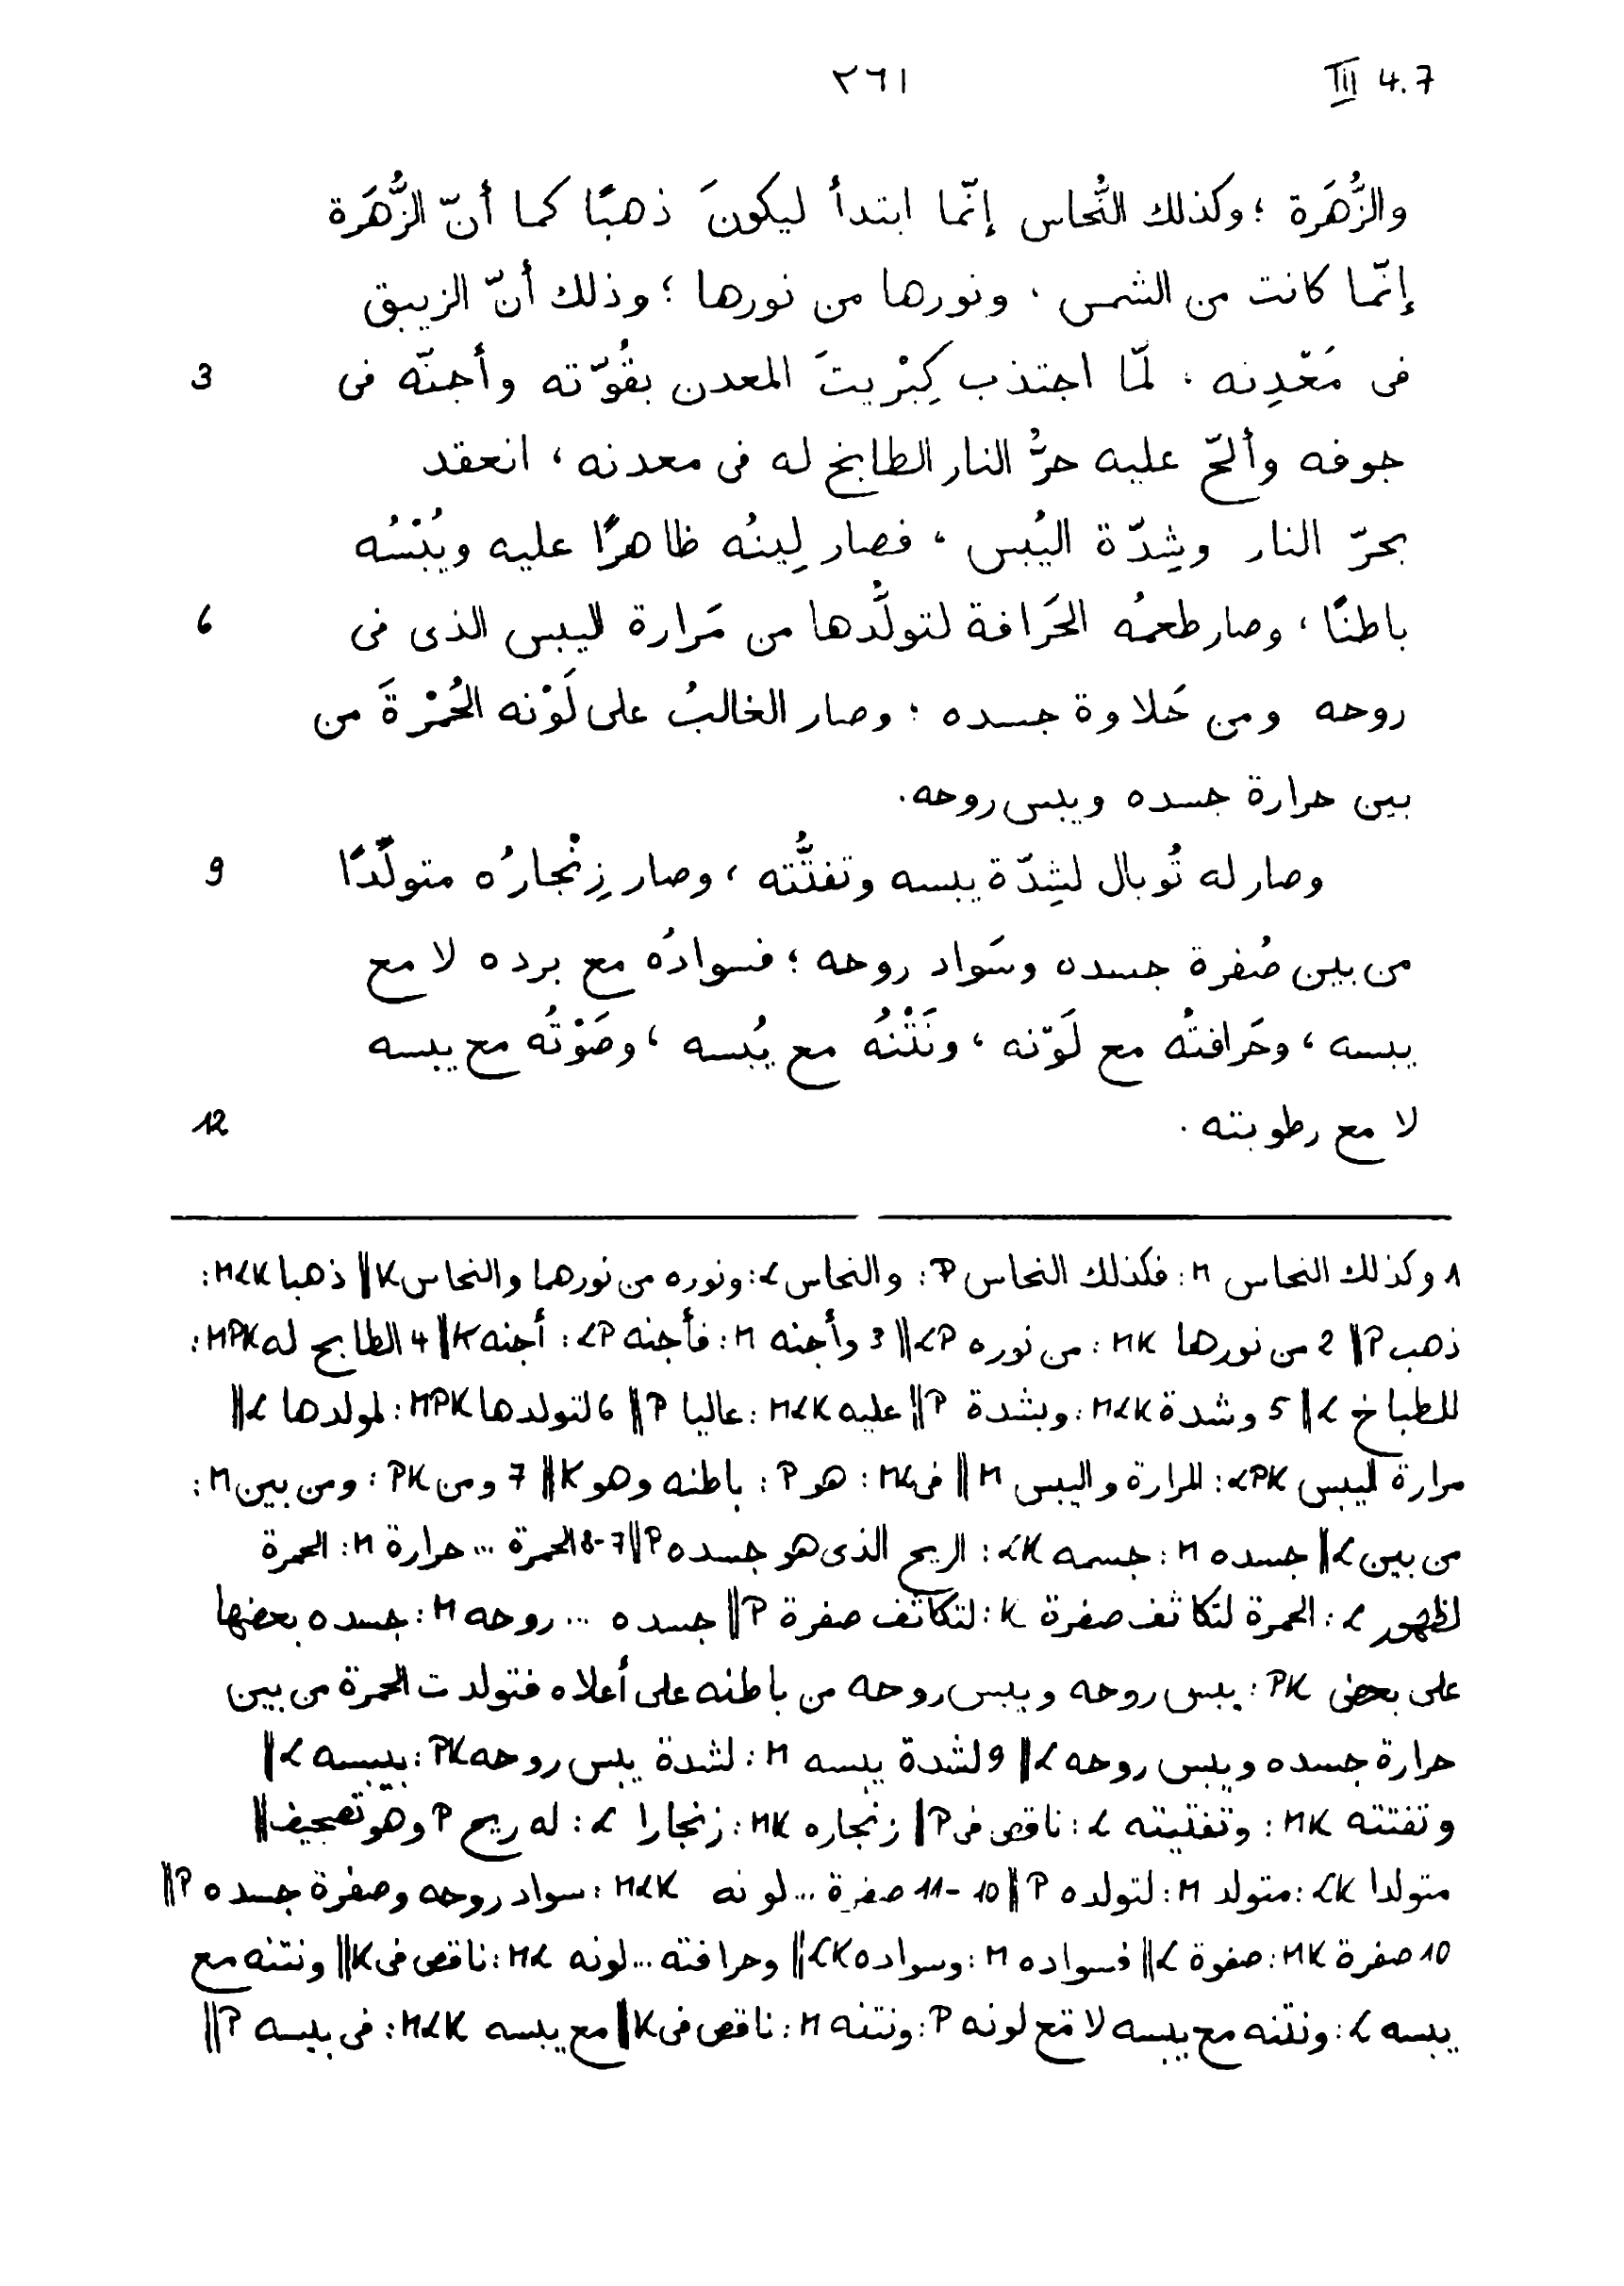 ٢٦١ III 4.7
والزُّهَرة ؛ وكذلك النُّحاس إنّما ابتدأ ليكونَ ذهبًا كما أنّ الزُّهَرة
إنّما كانت من الشمس ، ونورها من نورها ؛ وذلك أنّ الزيبق
3 فى مَعْدِنه ، لمّا اجتذب كِبْريتَ المعدن بقُوّته وأجنّه فى
جوفه وألحّ عليه حرُّ النار الطابخ له فى معدنه ، انعقد
بحرّ النار وشِدّة اليُبس ، فصار لِينُه ظاهرًا عليه ويُبْسُه
6 باطنًا ، وصار طعمُه الحَرافة لتولُّدها من مَرارة اليبس الذى فى
روحه ومن حَلاوة جسده ؛ وصار الغالبُ على لَوْنه الحُمْرةَ من
بين حرارة جسده ويبس روحه .
9 وصار له تُوبال لشِدّة يبسه وتفتُّته ، وصار زِنْجارُه متولِّدًا
من بين صُفرة جسده وسَواد روحه ؛ فسوادُه مع برده لا مع
يبسه ، وحَرافتُه مع لَوْنه ، ونَتْنُه مع يُبسه ، وصَوْتُه مع يبسه
12 لا مع رطوبته .
1 وكذلك النحاس M : فكذلك النحاس P : والنحاس L : ونوره من نورهما والنحاس K || ذهبا MLK :
ذهب P || 2 من نورها MK : من نوره LP || 3 وأجنه M : فأجنه LP : أجنه K || 4 الطابخ له MPK :
للطباخ L || 5 وشدة MLK : وبشدة P || عليه MLK : عاليا P || 6 لتولدها MPK : لمولدها L ||
مرارة اليبس LPK : المرارة واليبس M || فى ML : هو P : باطنه وهو K || 7 ومن PK : ومن بين M :
من بين L || جسده M : جسمه LK : الريح الذى هو جسده P || 7-8 الحمرة ... حرارة M : الحمرة
لظهور L : الحمرة لتكاثف صفرة K : لتكاثف صفرة P || جسده ... روحه M : جسده بعضها
على بعض PK : يبس روحه ويبس روحه من باطنه على أعلاه فتولدت الحمرة من بين
حرارة جسده ويبس روحه L || 9 لشدة يبسه M : لشدة يبس روحه PK : بيبسه L ||
وتفتته MK : وتفتيته L : ناقص فى P || زنجاره MK : زنجارا L : له ريح P وهو تصحيف ||
متولدا LK : متولد M : لتولده P || 10-11 صفرة ... لونه MLK : سواد روحه وصفرة جسده P ||
10 صفرة MK : صفوة L || فسواده M : وسواده LK || وحرافته ... لونه ML : ناقص فى K || ونتنه مع
يبسه L : ونتنه مع يبسه لا مع لونه P : ونتنه M : ناقص فى K || مع يبسه MLK : فى يبسه P ||